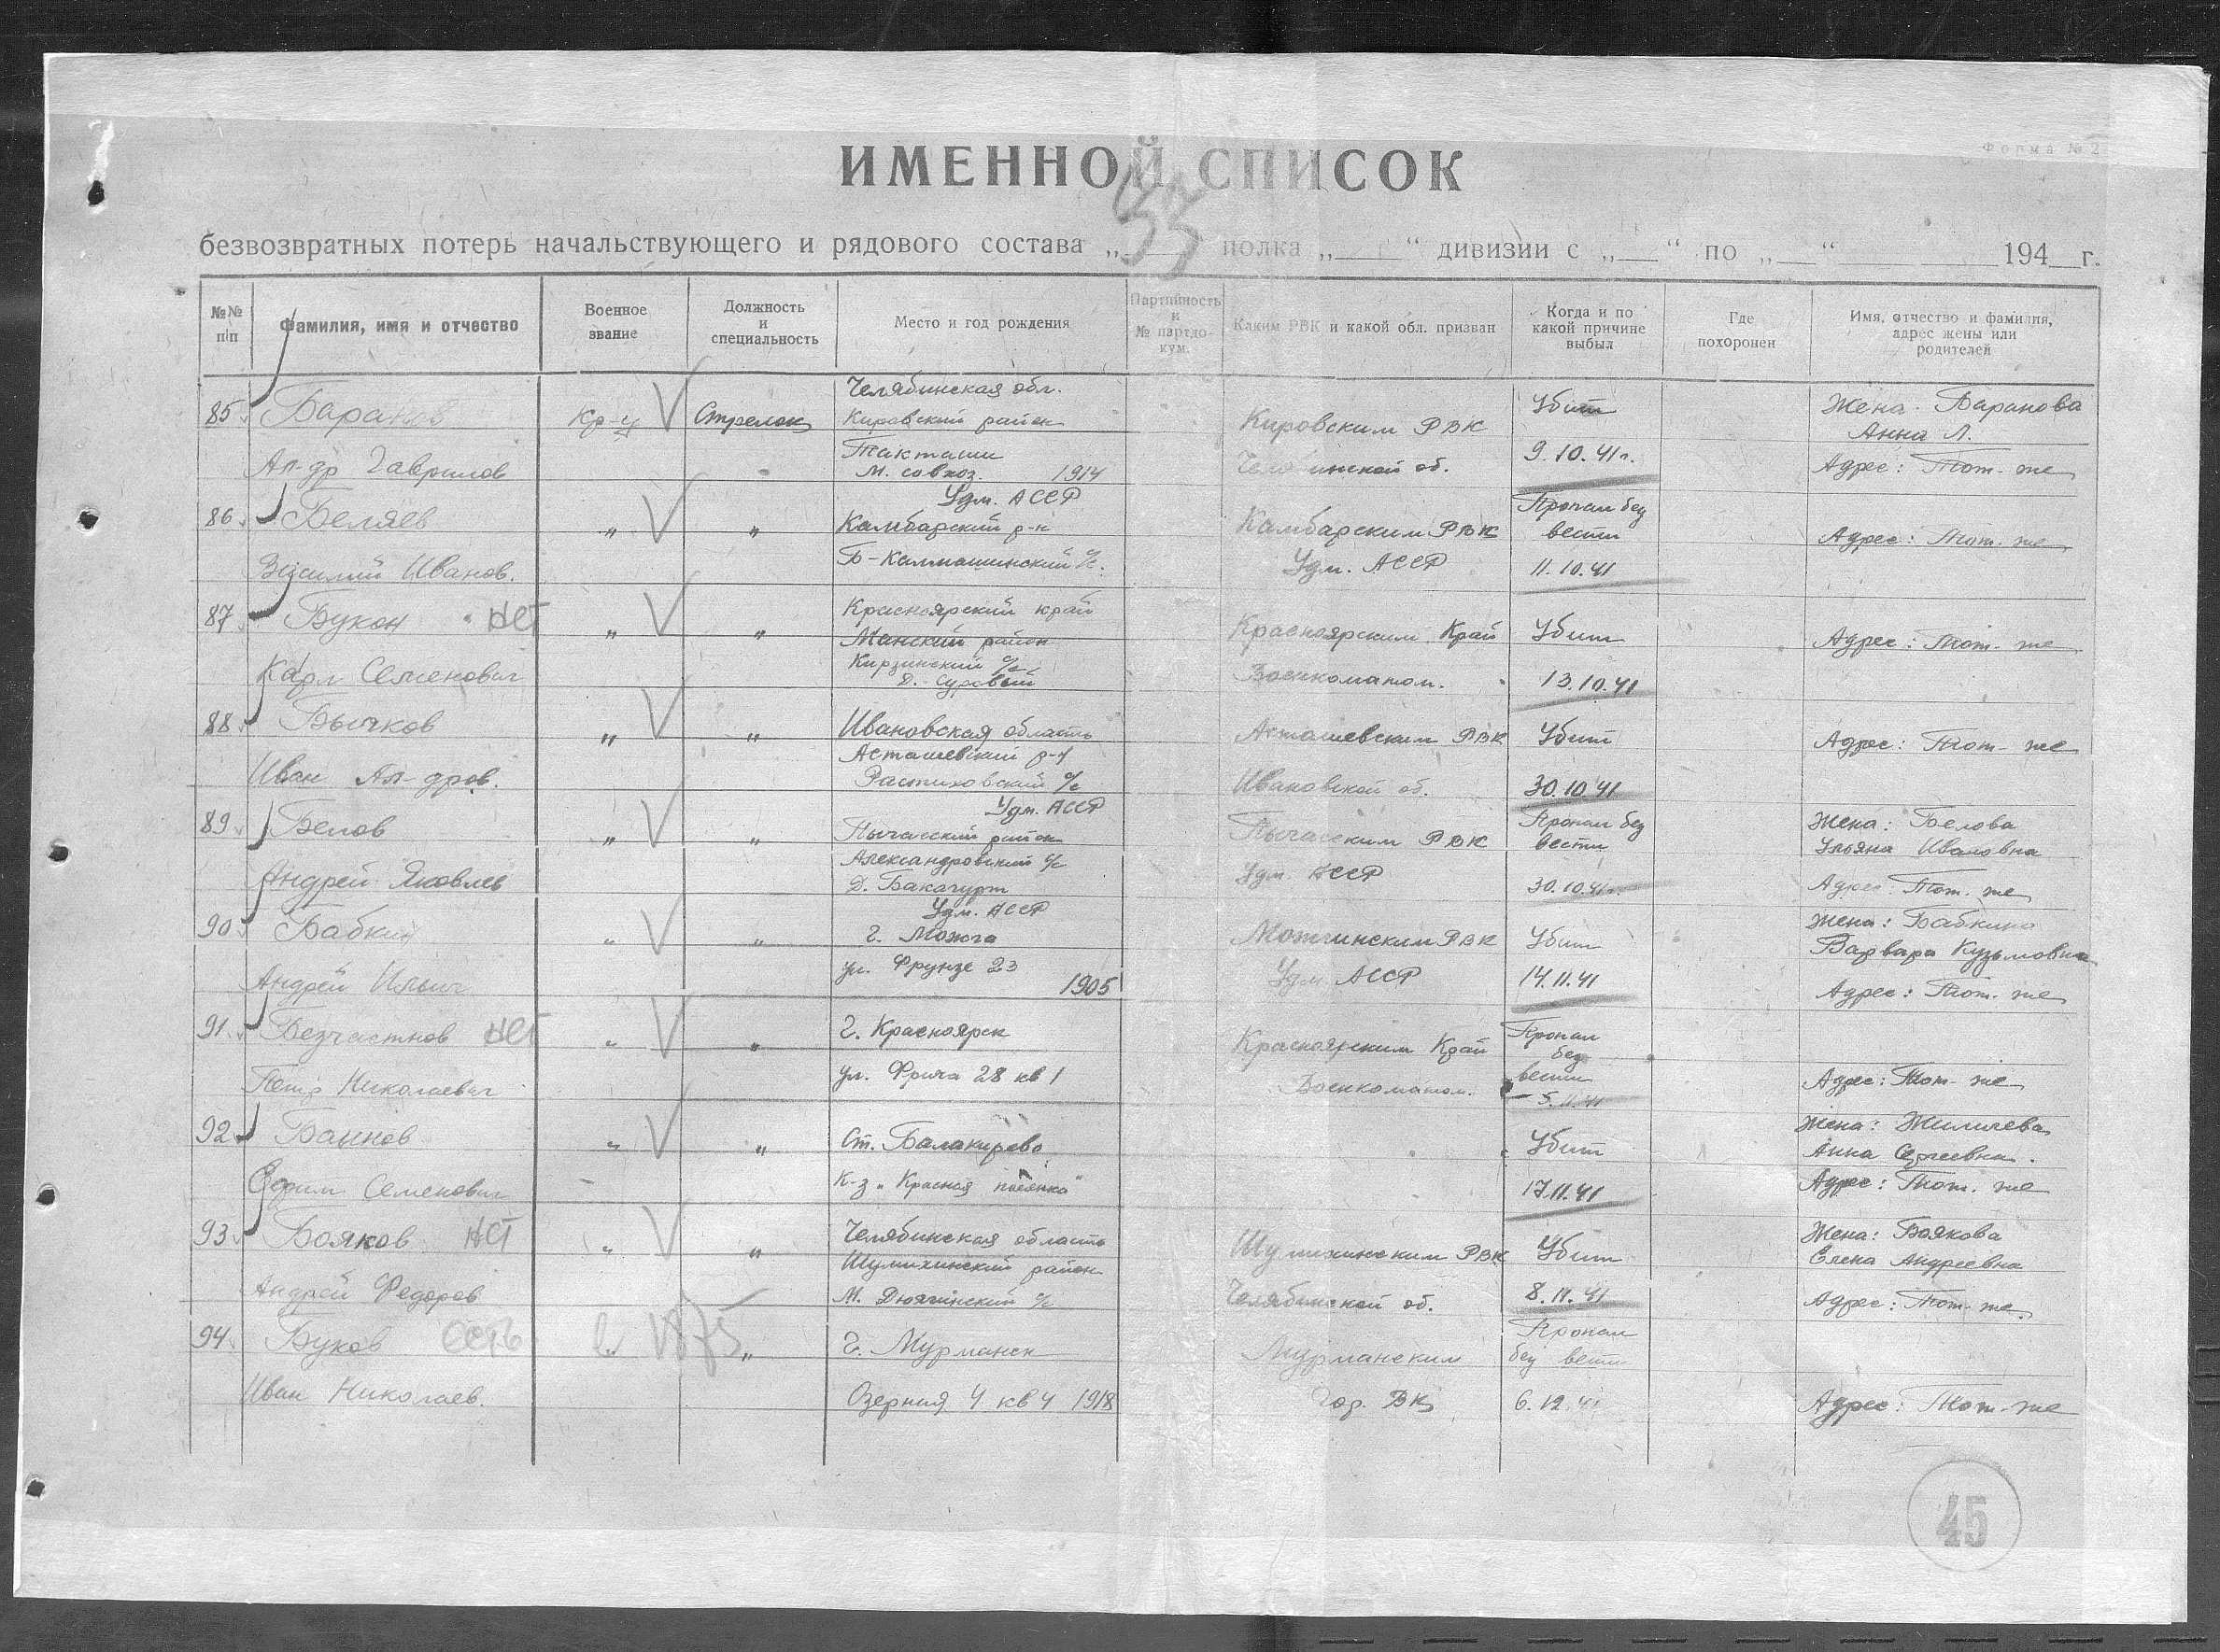 Форма № 2
ИМЕННОЙ СПИСОК
безвозвратных потерь начальствующего и рядового состава „___ полка „___“ дивизии с „__“ по „__“ ______ 194__г.
№№ п/п
Фамилия, имя и отчество
Военное звание
Должность и специальность
Место и год рождения
Партийность и № партдокум.
Каким РВК и какой обл. призван
Когда и по какой причине выбыл
Где похоронен
Имя, отчество и фамилия, адрес жены или родителей
85 Баранов
Ал-др Гаврилов
Кр-ц
Стрелок
Челябинская обл.
Кировский район
Такташи
М. совхоз. 1914
Кировским РВК
Челябинской об.
Убит
9.10.41г.
Жена. Баранова
Анна Л.
Адрес: Тот-же
86 Беляев
Василий Иванов.
„
„
Удм. АССР
Камбарский р-н
Б-Калмашинский с/с.
Камбарским РВК
Удм. АССР
Пропал без
вести
11.10.41
Адрес: Тот-же
87 Букон нет
Карл Семенович
„
„
Красноярский край
Манский район
Кирзинский с/с
Красноярским Край
Военкоматом.
Убит
13.10.41
Адрес: Тот-же
88 Бычков
Иван Ал-дров.
„
„
Ивановская область
Асташевский р-н
с/с
Асташевским РВК
Ивановской об.
Убит
30.10.41
Адрес: Тот-же
89 Белов
Андрей Яковлев
„
„
Удм. АССР
Пычасский район
Александровский с/с
Д. Бакачурт
Пычасским РВК
Удм. АССР
Пропал без
вести
30.10.41г.
Жена: Белова
Ульяна Ивановна
Адрес: Тот-же
90 Бабкин
Андрей Ильич
„
„
Удм. АССР
г. Можга
ул. Фрунзе 23
1905
Можгинским РВК
Удм АССР
Убит
14.11.41
Жена: Бабкина
Варвара Кузьмовна
Адрес: Тот-же
91 Безчастнов нет
Петр Николаевич
„
„
г. Красноярск
ул. 28 кв 1
Красноярским Край
Военкоматом.
Пропал
без
вести
5.11.41
Адрес: Тот-же
92 Баннов
Ефим Семенович
„
„
ст. Балакирево
К-з „Красная
Убит
17.11.41
Жена:
Анна Сергеевна.
Адрес: Тот-же
93 Бояков нет
Андрей Федоров
„
„
Челябинская область
Шумихинский район
с/с
Шумихинским РВК
Челябинской об.
Убит
8.11.41
Жена: Боякова
Елена Андреевна
Адрес: Тот-же
94 Буков есть
Иван Николаев.
1875
„
г. Мурманск
Озерная 4 кв 4 1918
Мурманским
Гор. ВК
Пропал
без вести
6.12.41
Адрес: Тот-же
45